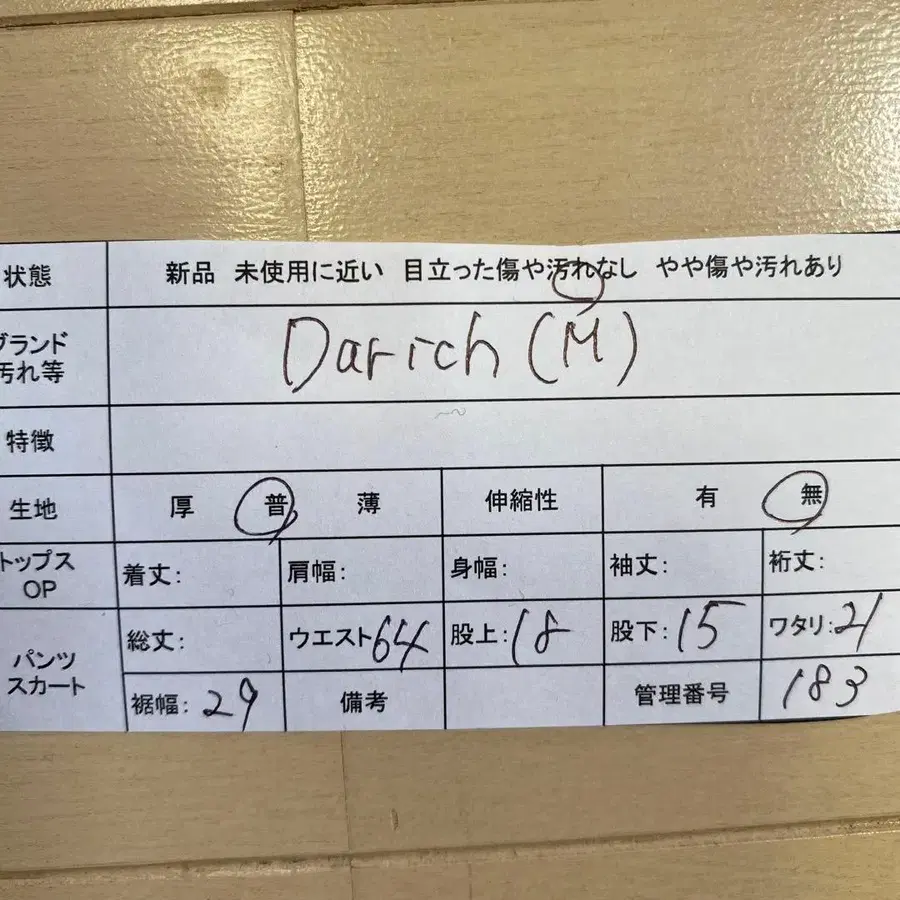 状態 新品 未使用に近い 目立った傷や汚れなし やや傷や汚れあり
ブランド
汚れ等 Darich (M)
特徴
生地 厚 普 薄 伸縮性 有 無
トップス
OP 着丈: 肩幅: 身幅: 袖丈: 裄丈:
パンツ
スカート 総丈: ウエスト64 股上:18 股下:15 ワタリ:21
裾幅:29 備考 管理番号 183